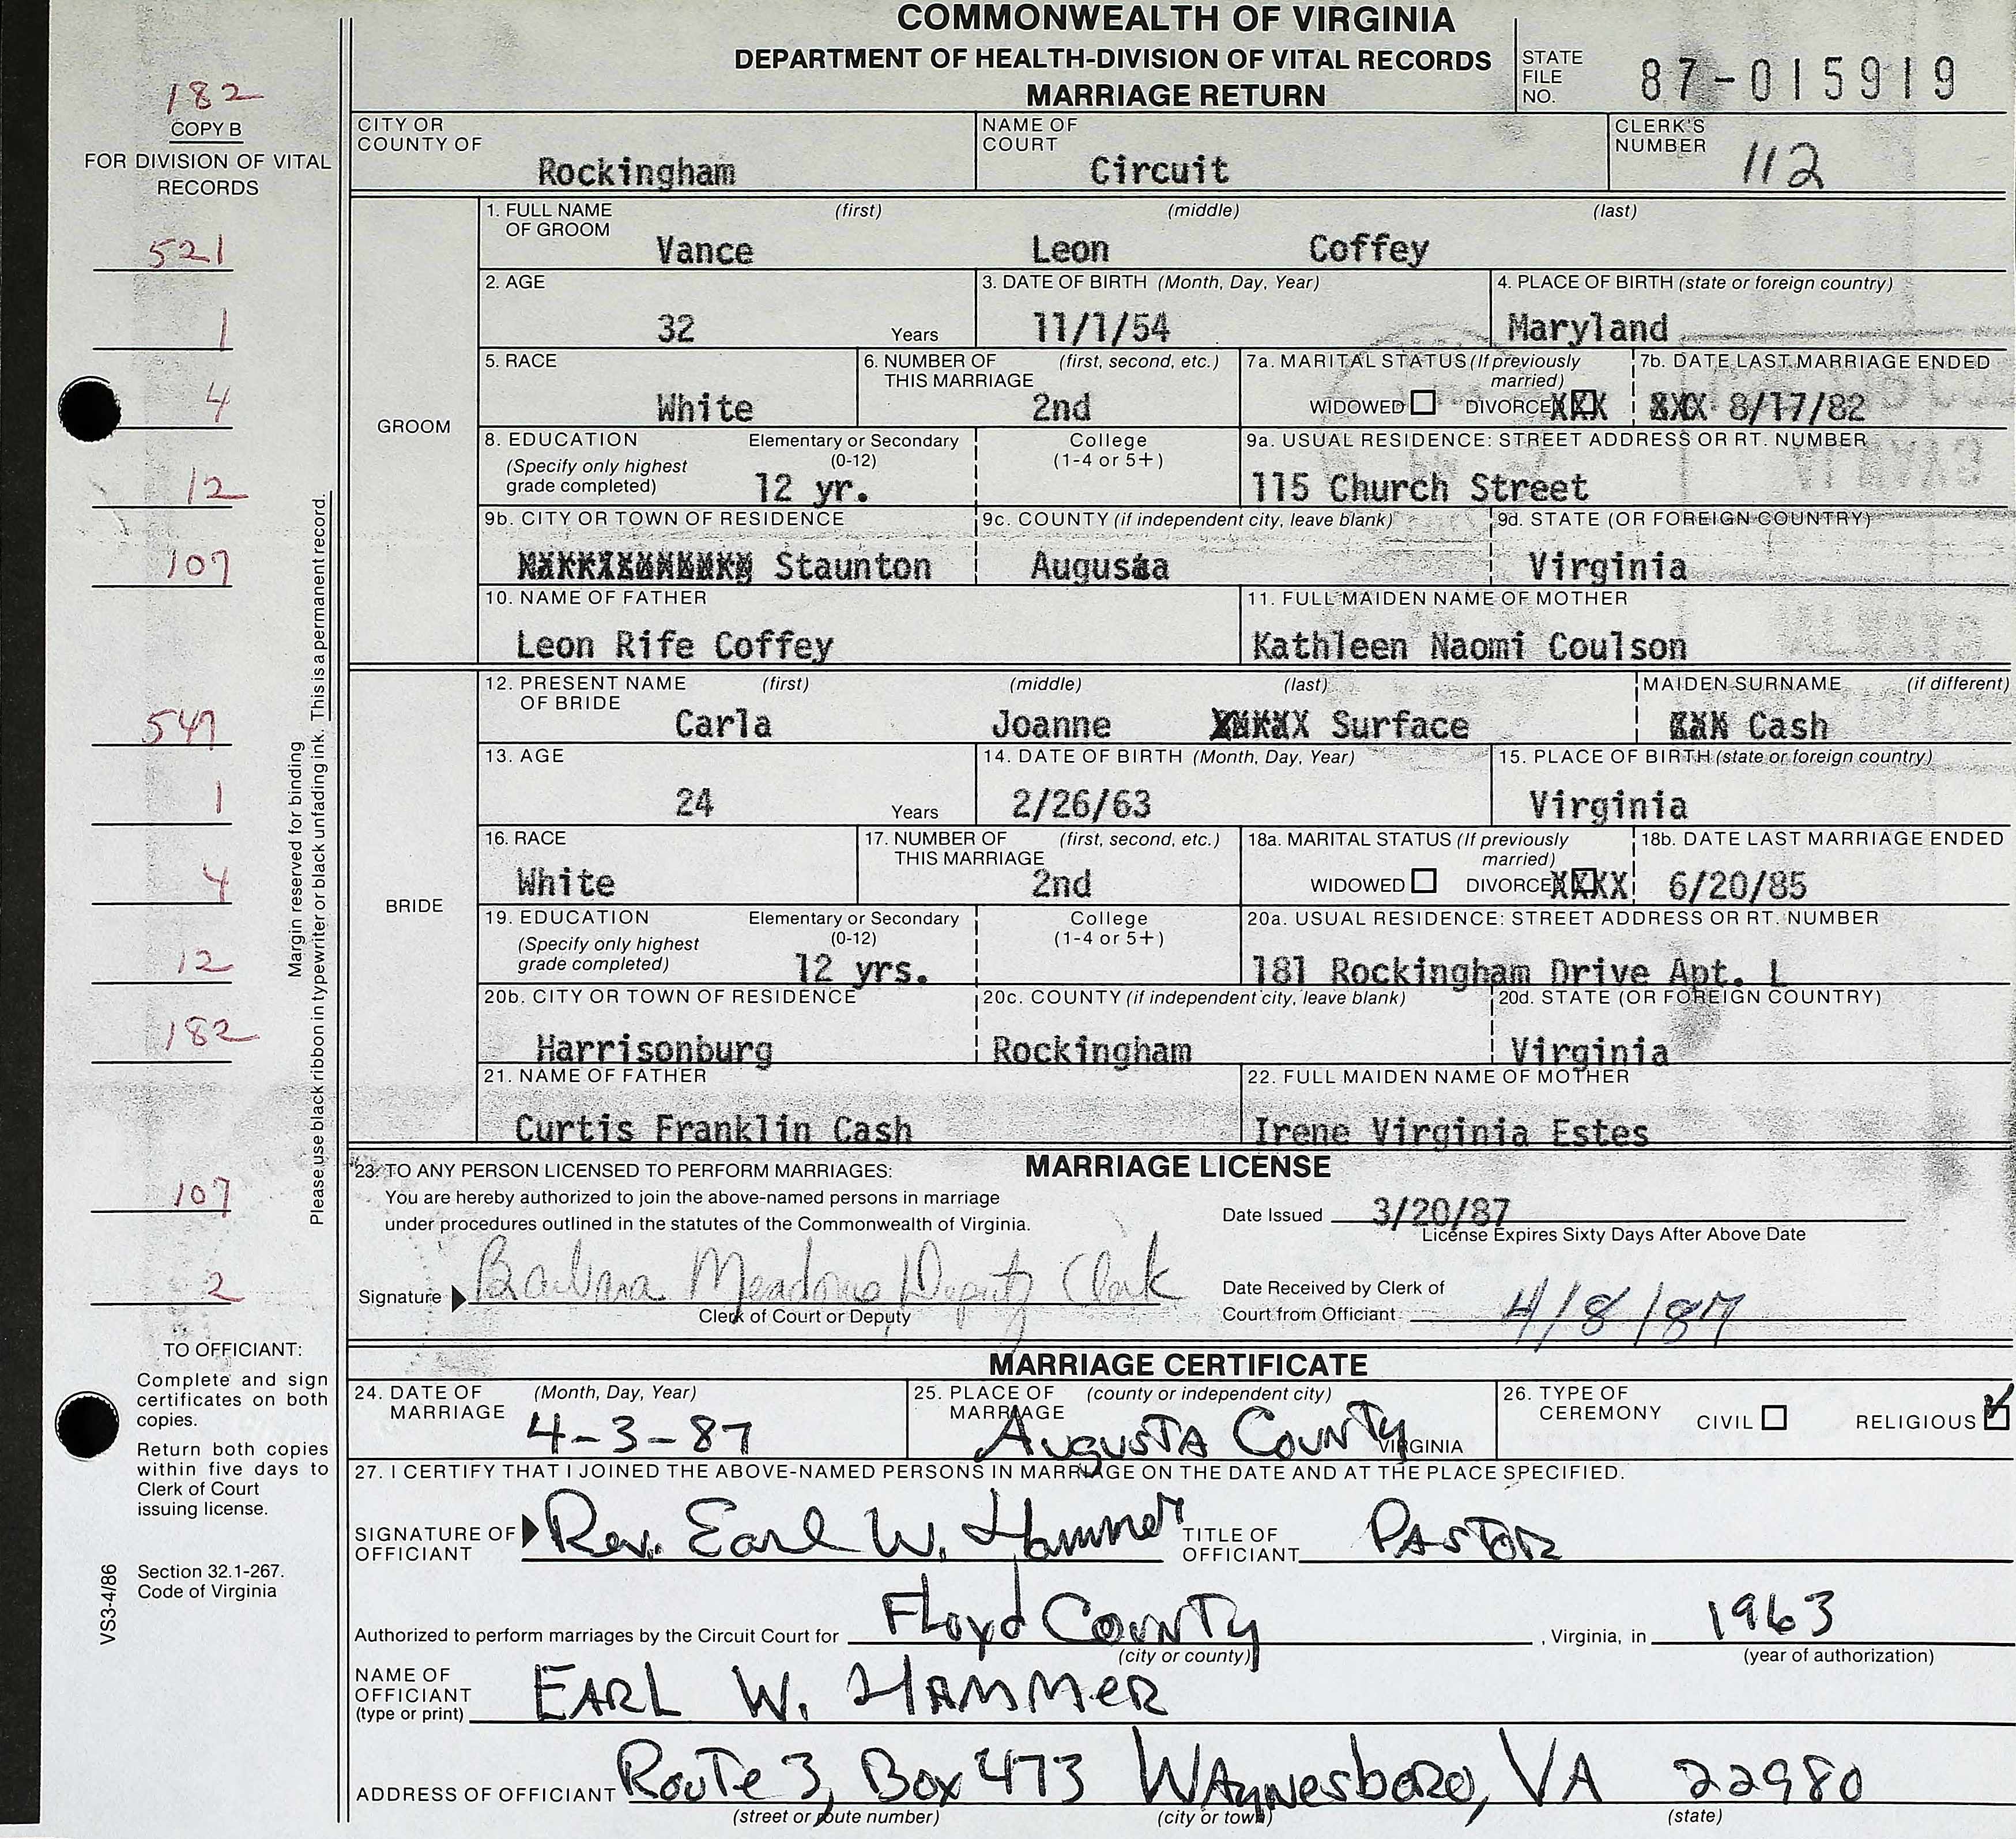 COMMONWEALTH OF VIRGINIA
DEPARTMENT OF HEALTH-DIVISION OF VITAL RECORDS
MARRIAGE RETURN
STATE FILE NO. 87-015919
182
COPY B
FOR DIVISION OF VITAL RECORDS
CITY OR COUNTY OF Rockingham
NAME OF COURT Circuit
CLERK'S NUMBER 112
521
1
4
12
107
547
1
4
12
182
107
2
Margin reserved for binding
Please use black ribbon in typewriter or black unfading ink. This is a permanent record.
GROOM
1. FULL NAME OF GROOM (first) (middle) (last)
Vance Leon Coffey
2. AGE 32 Years
3. DATE OF BIRTH (Month, Day, Year) 11/1/54
4. PLACE OF BIRTH (state or foreign country) Maryland
5. RACE White
6. NUMBER OF THIS MARRIAGE (first, second, etc.) 2nd
7a. MARITAL STATUS (If previously married) WIDOWED DIVORCEXXX
7b. DATE LAST MARRIAGE ENDED 8/17/82
8. EDUCATION (Specify only highest grade completed) Elementary or Secondary (0-12) 12 yr.
College (1-4 or 5+)
9a. USUAL RESIDENCE: STREET ADDRESS OR RT. NUMBER 115 Church Street
9b. CITY OR TOWN OF RESIDENCE Staunton
9c. COUNTY (if independent city, leave blank) Augusta
9d. STATE (OR FOREIGN COUNTRY) Virginia
10. NAME OF FATHER Leon Rife Coffey
11. FULL MAIDEN NAME OF MOTHER Kathleen Naomi Coulson
BRIDE
12. PRESENT NAME OF BRIDE (first) (middle) (last) MAIDEN SURNAME (if different)
Carla Joanne Surface Cash
13. AGE 24 Years
14. DATE OF BIRTH (Month, Day, Year) 2/26/63
15. PLACE OF BIRTH (state or foreign country) Virginia
16. RACE White
17. NUMBER OF THIS MARRIAGE (first, second, etc.) 2nd
18a. MARITAL STATUS (If previously married) WIDOWED DIVORCEXXXX
18b. DATE LAST MARRIAGE ENDED 6/20/85
19. EDUCATION (Specify only highest grade completed) Elementary or Secondary (0-12) 12 yrs.
College (1-4 or 5+)
20a. USUAL RESIDENCE: STREET ADDRESS OR RT. NUMBER 181 Rockingham Drive Apt. L
20b. CITY OR TOWN OF RESIDENCE Harrisonburg
20c. COUNTY (if independent city, leave blank) Rockingham
20d. STATE (OR FOREIGN COUNTRY) Virginia
21. NAME OF FATHER Curtis Franklin Cash
22. FULL MAIDEN NAME OF MOTHER Irene Virginia Estes
MARRIAGE LICENSE
23. TO ANY PERSON LICENSED TO PERFORM MARRIAGES:
You are hereby authorized to join the above-named persons in marriage
under procedures outlined in the statutes of the Commonwealth of Virginia.
Date Issued 3/20/87
License Expires Sixty Days After Above Date
Signature Barbara Meadows, Deputy Clerk
Clerk of Court or Deputy
Date Received by Clerk of Court from Officiant 4/8/87
MARRIAGE CERTIFICATE
24. DATE OF MARRIAGE (Month, Day, Year) 4-3-87
25. PLACE OF MARRIAGE (county or independent city) Augusta County VIRGINIA
26. TYPE OF CEREMONY CIVIL RELIGIOUS
27. I CERTIFY THAT I JOINED THE ABOVE-NAMED PERSONS IN MARRIAGE ON THE DATE AND AT THE PLACE SPECIFIED.
SIGNATURE OF OFFICIANT Rev. Earl W. Hammer
TITLE OF OFFICIANT Pastor
Authorized to perform marriages by the Circuit Court for Floyd County, Virginia, in 1963
(city or county) (year of authorization)
NAME OF OFFICIANT (type or print) EARL W. HAMMER
ADDRESS OF OFFICIANT Route 3, Box 473 Waynesboro, VA 22980
(street or route number) (city or town) (state)
TO OFFICIANT:
Complete and sign
certificates on both
copies.
Return both copies
within five days to
Clerk of Court
issuing license.
Section 32.1-267.
Code of Virginia
VS3-4/86